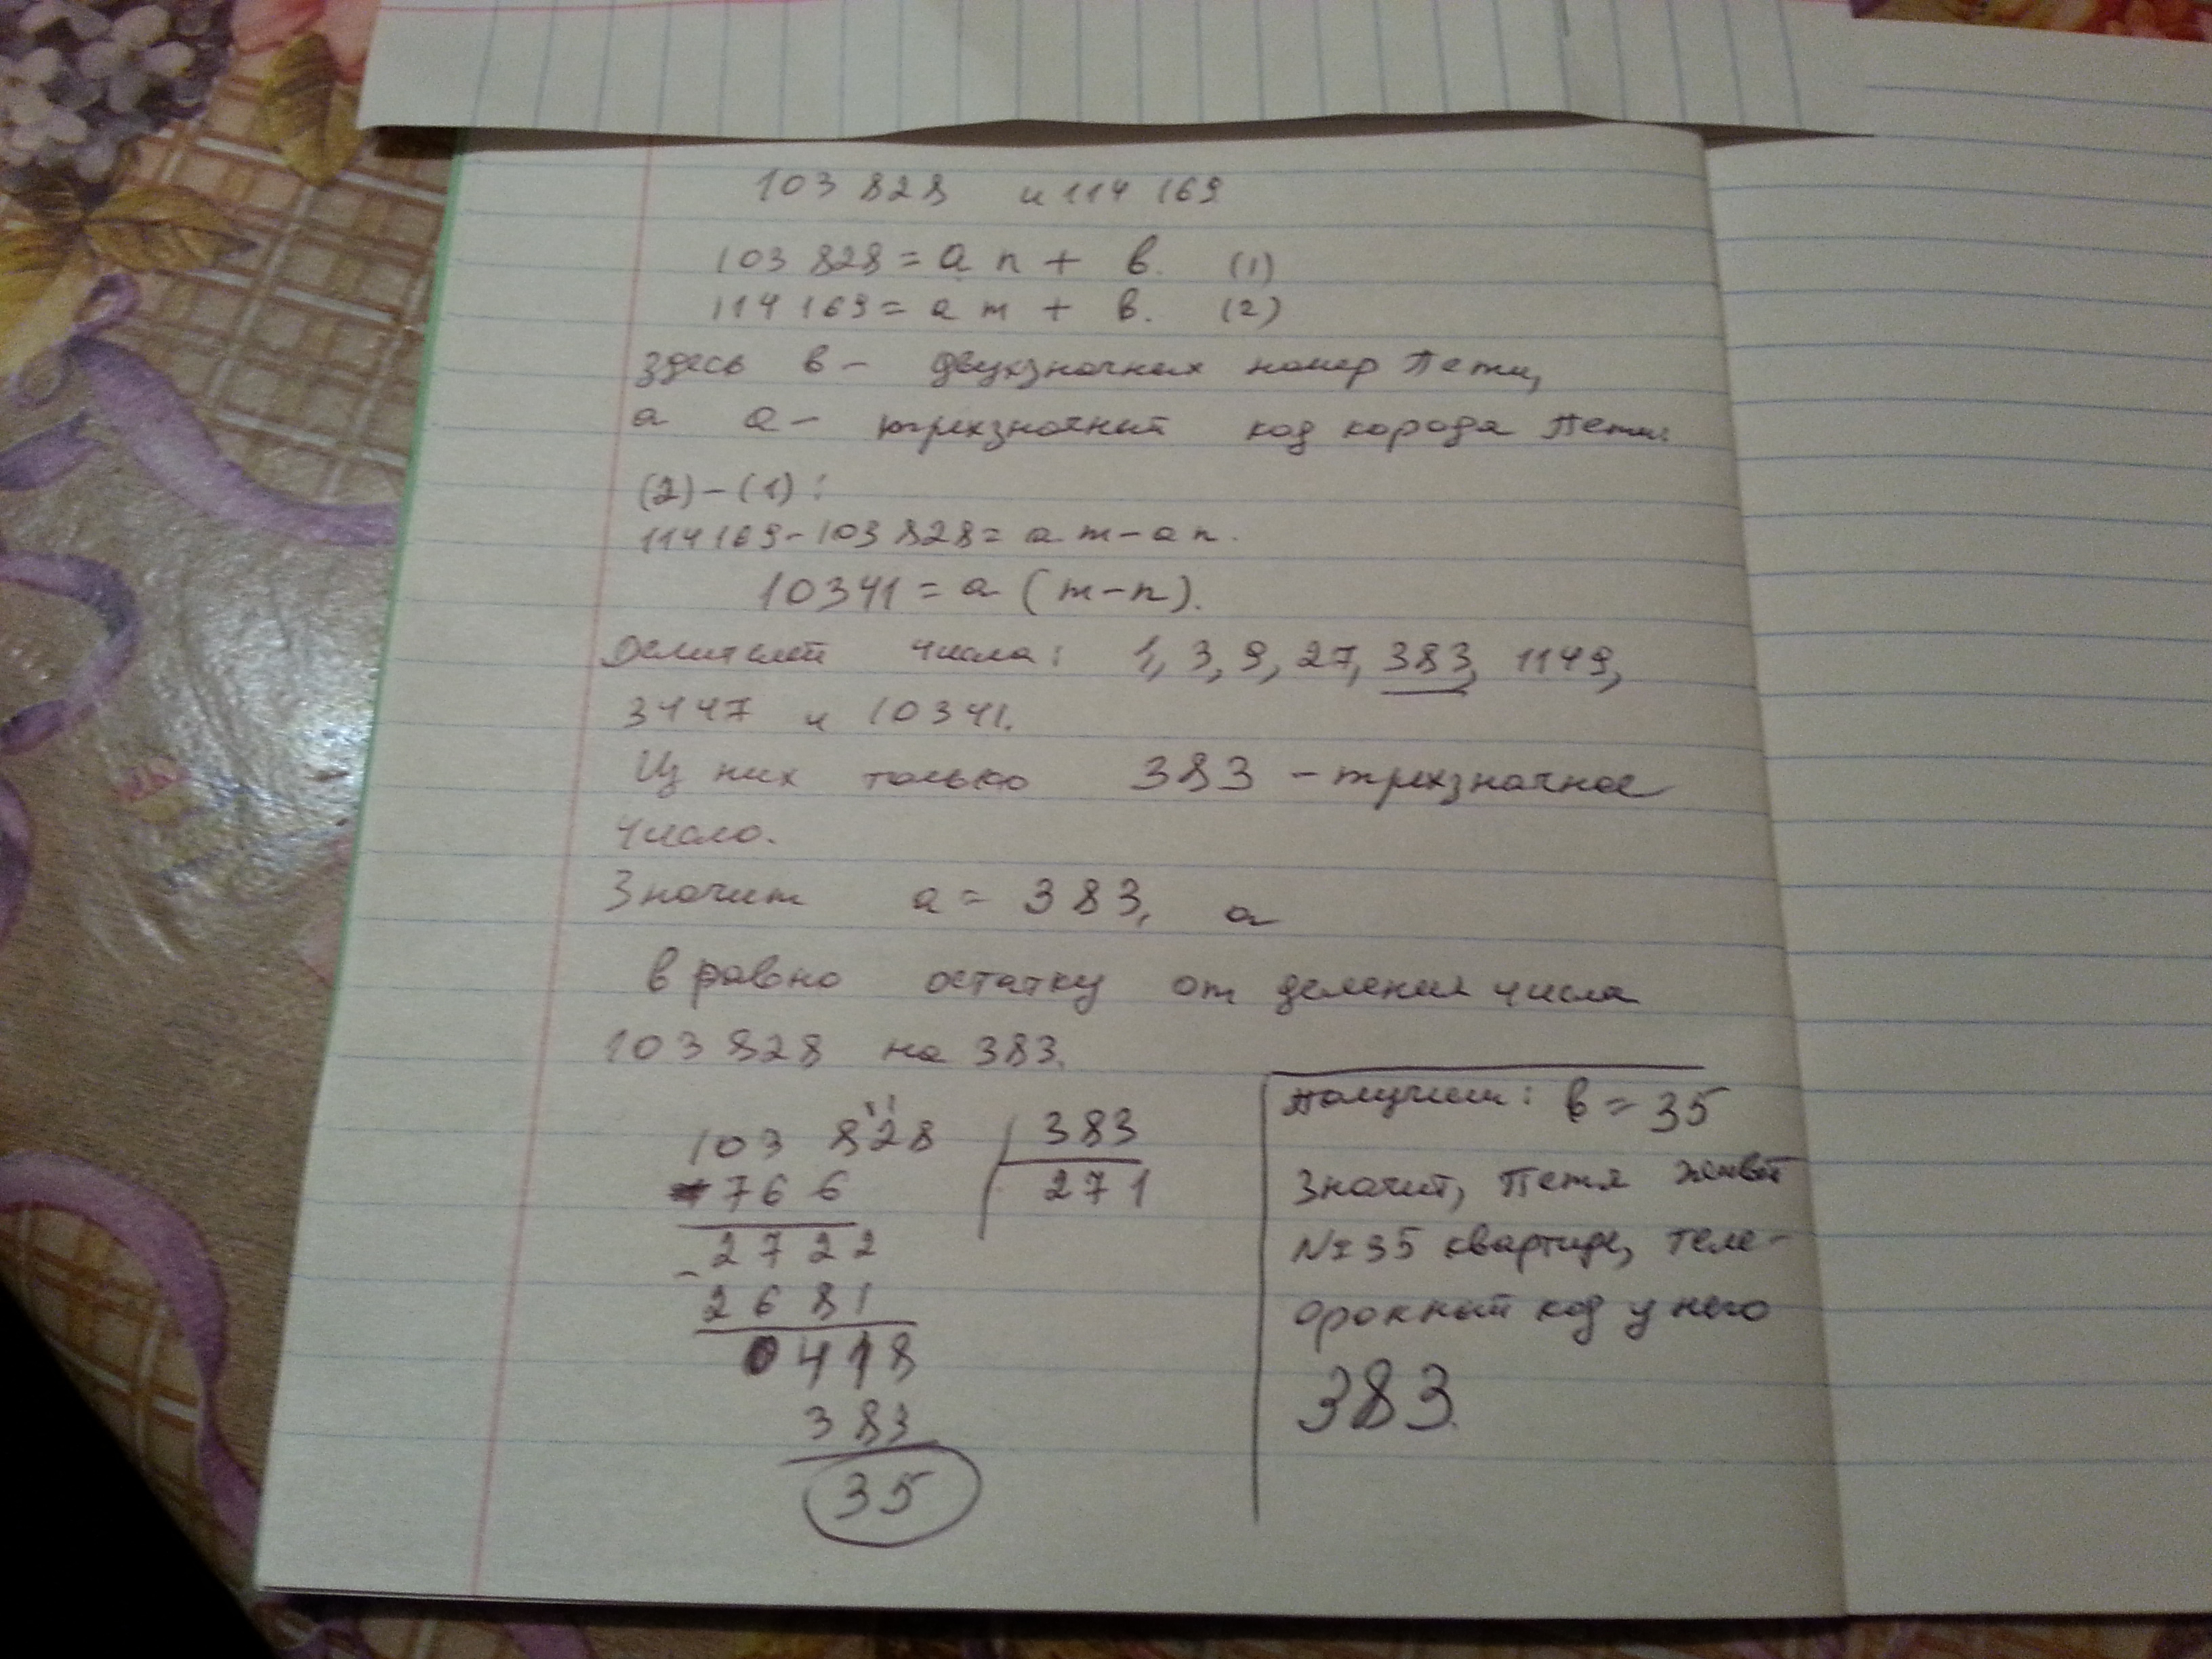 103 828 и 114 169
103 828 = a n + в. (1)
114 169 = a m + в. (2)
здесь в – двухзначных номер Пети,
а a – трехзначный код города Пети.
(2) – (1):
114169 – 103 828 = a m – a n.
10341 = a (m – n).
Делителей числа: 1, 3, 9, 27, 383, 1149,
3447 и 10341.
Из них только 383 – трехзначное
число.
Значит a = 383, а
в равно остатку от деления числа
103 828 на 383.
103 828 383
766 271
2722
–
2681
0418
383
35
Получим: в = 35
Значит, Петя живёт
№35 квартире, теле-
фонный код у него
383.